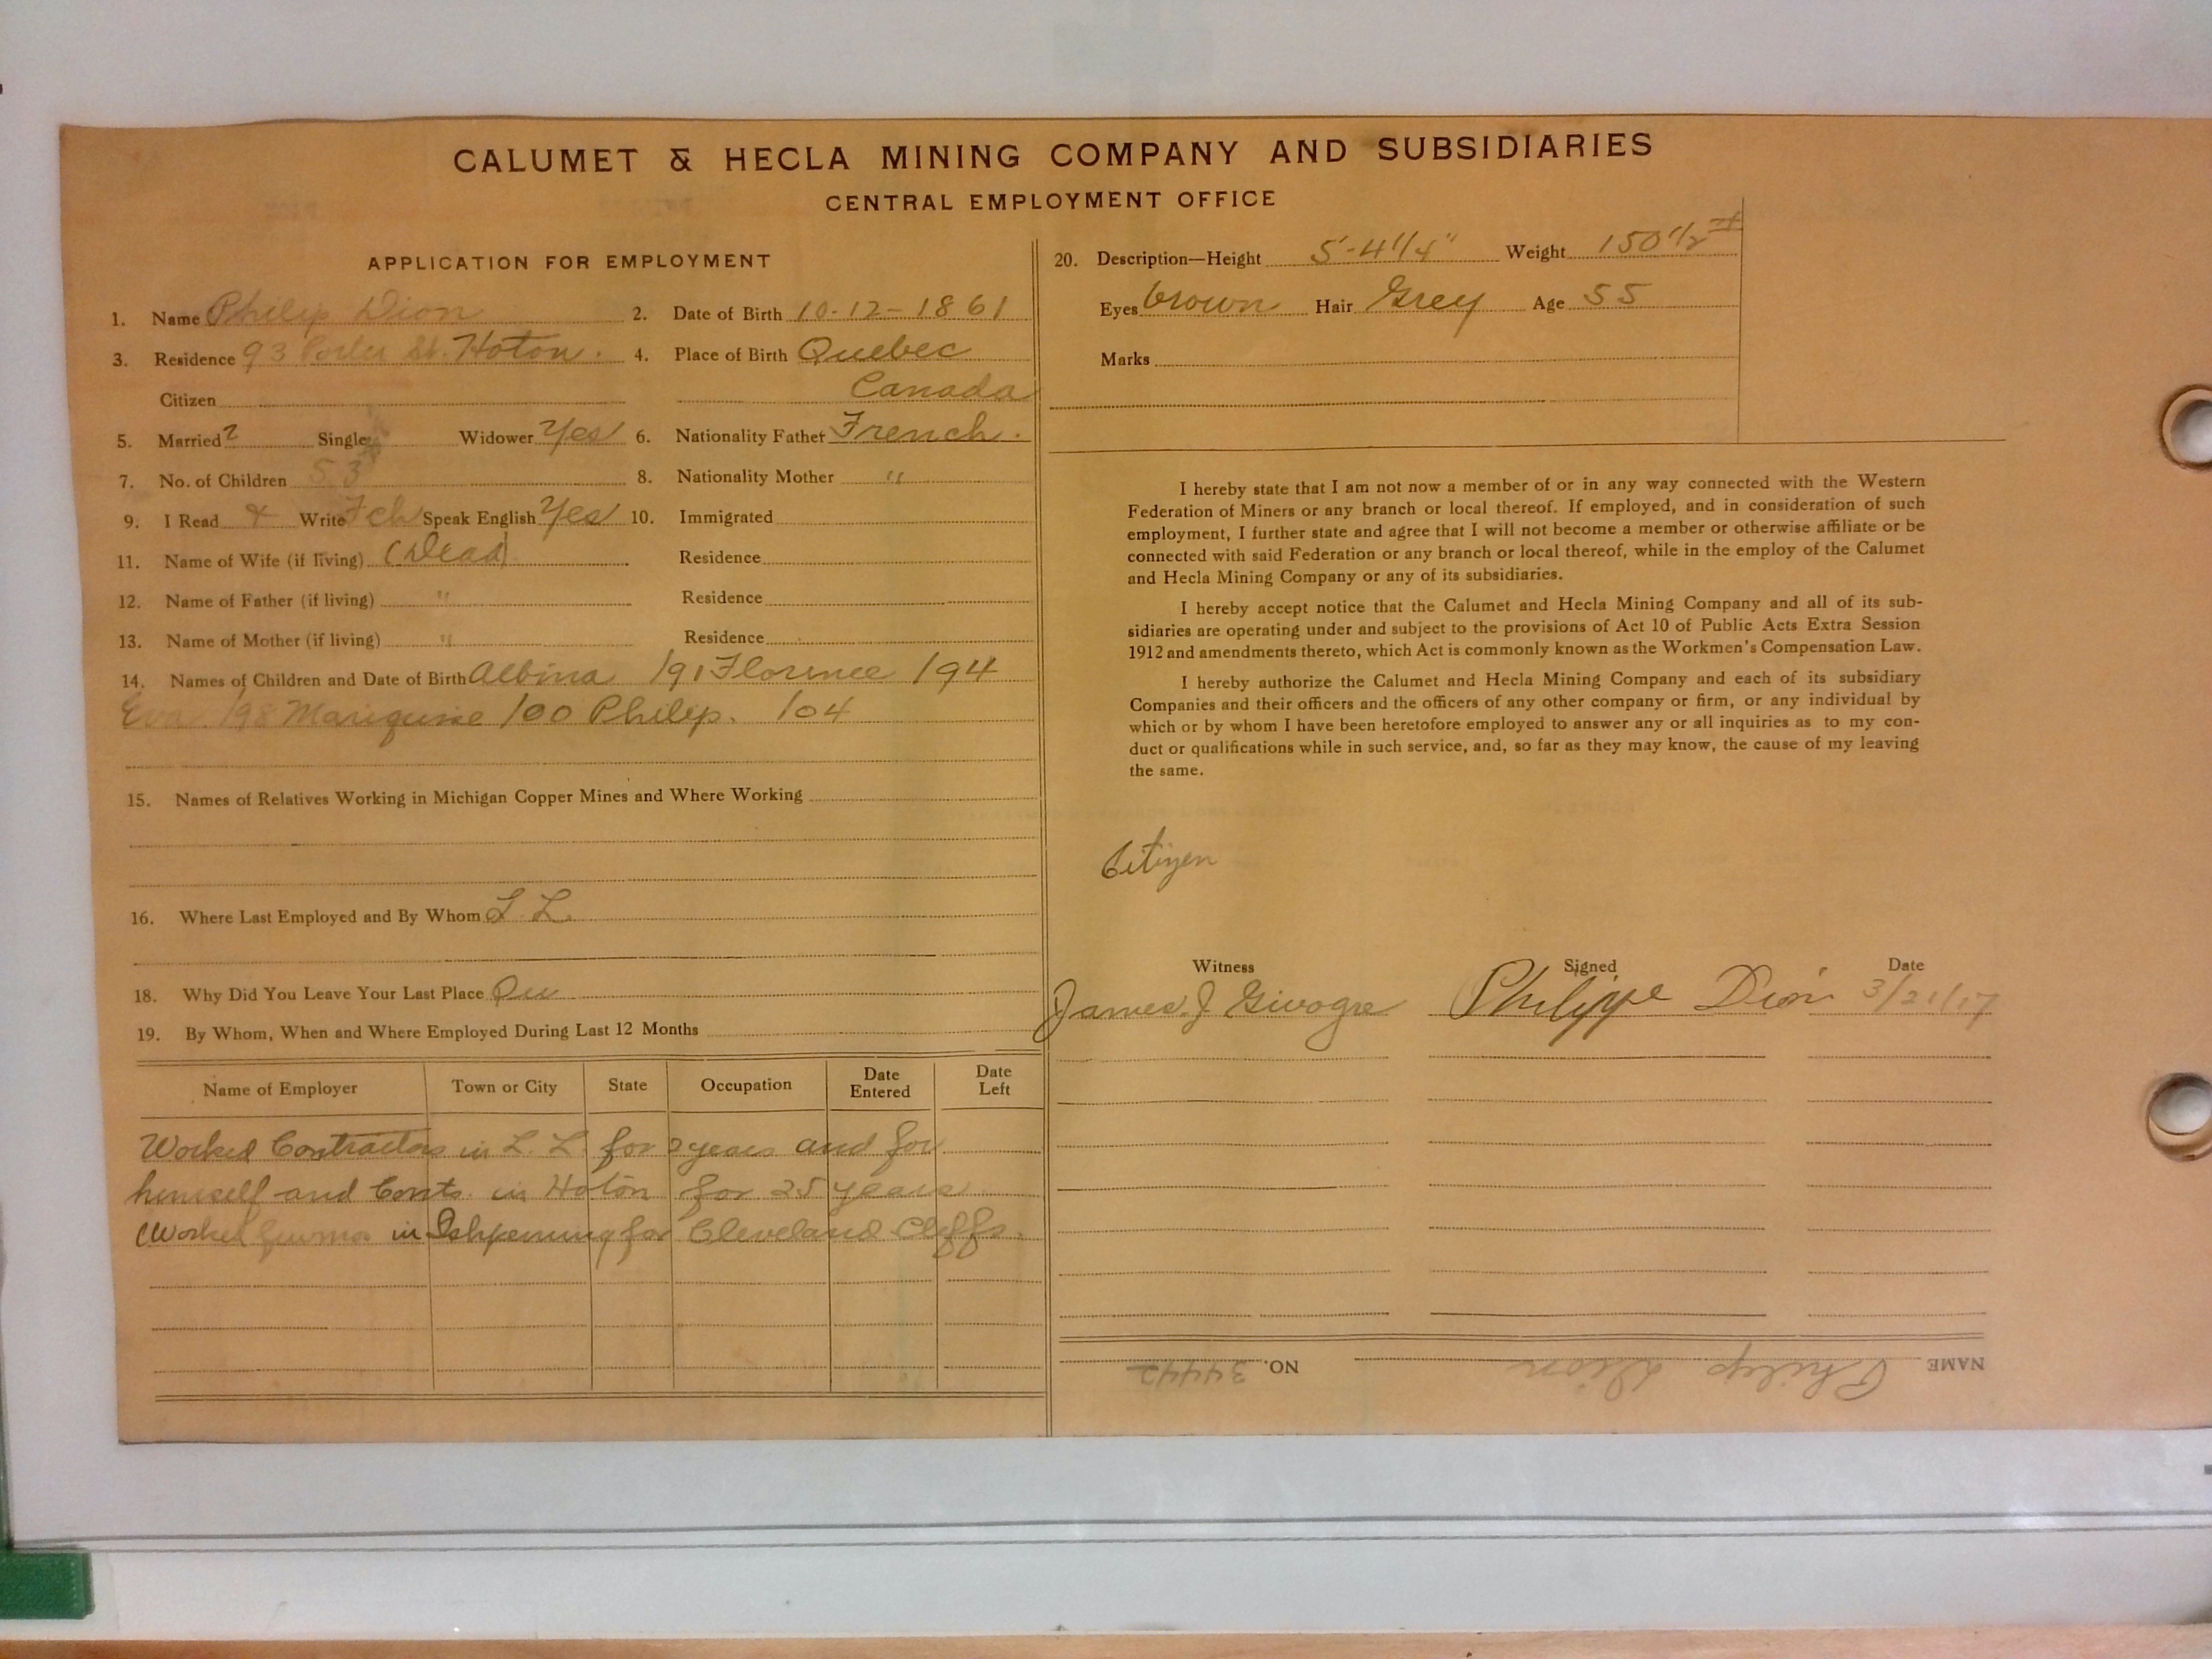 CALUMET & HECLA MINING COMPANY AND SUBSIDIARIES
CENTRAL EMPLOYMENT OFFICE
APPLICATION FOR EMPLOYMENT
1. Name Philip Dion 2. Date of Birth 10-12-1861
3. Residence 93 St. Hoton. 4. Place of Birth Quebec
Citizen Canada
5. Married 2 Single Widower Yes 6. Nationality Father French.
7. No. of Children 5 3 8. Nationality Mother "
9. I Read & Write Fch Speak English Yes 10. Immigrated
11. Name of Wife (if living) (Dead) Residence
12. Name of Father (if living) " Residence
13. Name of Mother (if living) " Residence
14. Names of Children and Date of Birth Albina 191 Florence 194
Eva 198 100 Philip. 104
15. Names of Relatives Working in Michigan Copper Mines and Where Working
16. Where Last Employed and By Whom L. L.
18. Why Did You Leave Your Last Place
19. By Whom, When and Where Employed During Last 12 Months
Name of Employer Town or City State Occupation Date Entered Date Left
Worked Contractors in L. L. for 2 years and for
himself and Conts. in Hoton for 25 years
Worked in Ishpeming for Cleveland Cliffs.
20. Description—Height 5'-4 1/4" Weight 150 1/2 #
Eyes brown Hair Grey Age 55
Marks
I hereby state that I am not now a member of or in any way connected with the Western
Federation of Miners or any branch or local thereof. If employed, and in consideration of such
employment, I further state and agree that I will not become a member or otherwise affiliate or be
connected with said Federation or any branch or local thereof, while in the employ of the Calumet
and Hecla Mining Company or any of its subsidiaries.
I hereby accept notice that the Calumet and Hecla Mining Company and all of its sub-
sidiaries are operating under and subject to the provisions of Act 10 of Public Acts Extra Session
1912 and amendments thereto, which Act is commonly known as the Workmen's Compensation Law.
I hereby authorize the Calumet and Hecla Mining Company and each of its subsidiary
Companies and their officers and the officers of any other company or firm, or any individual by
which or by whom I have been heretofore employed to answer any or all inquiries as to my con-
duct or qualifications while in such service, and, so far as they may know, the cause of my leaving
the same.
Citizen
Witness Signed Date
James J Givogre Philippe Dion 3/21/17
NAME Philip Dion NO. 34442